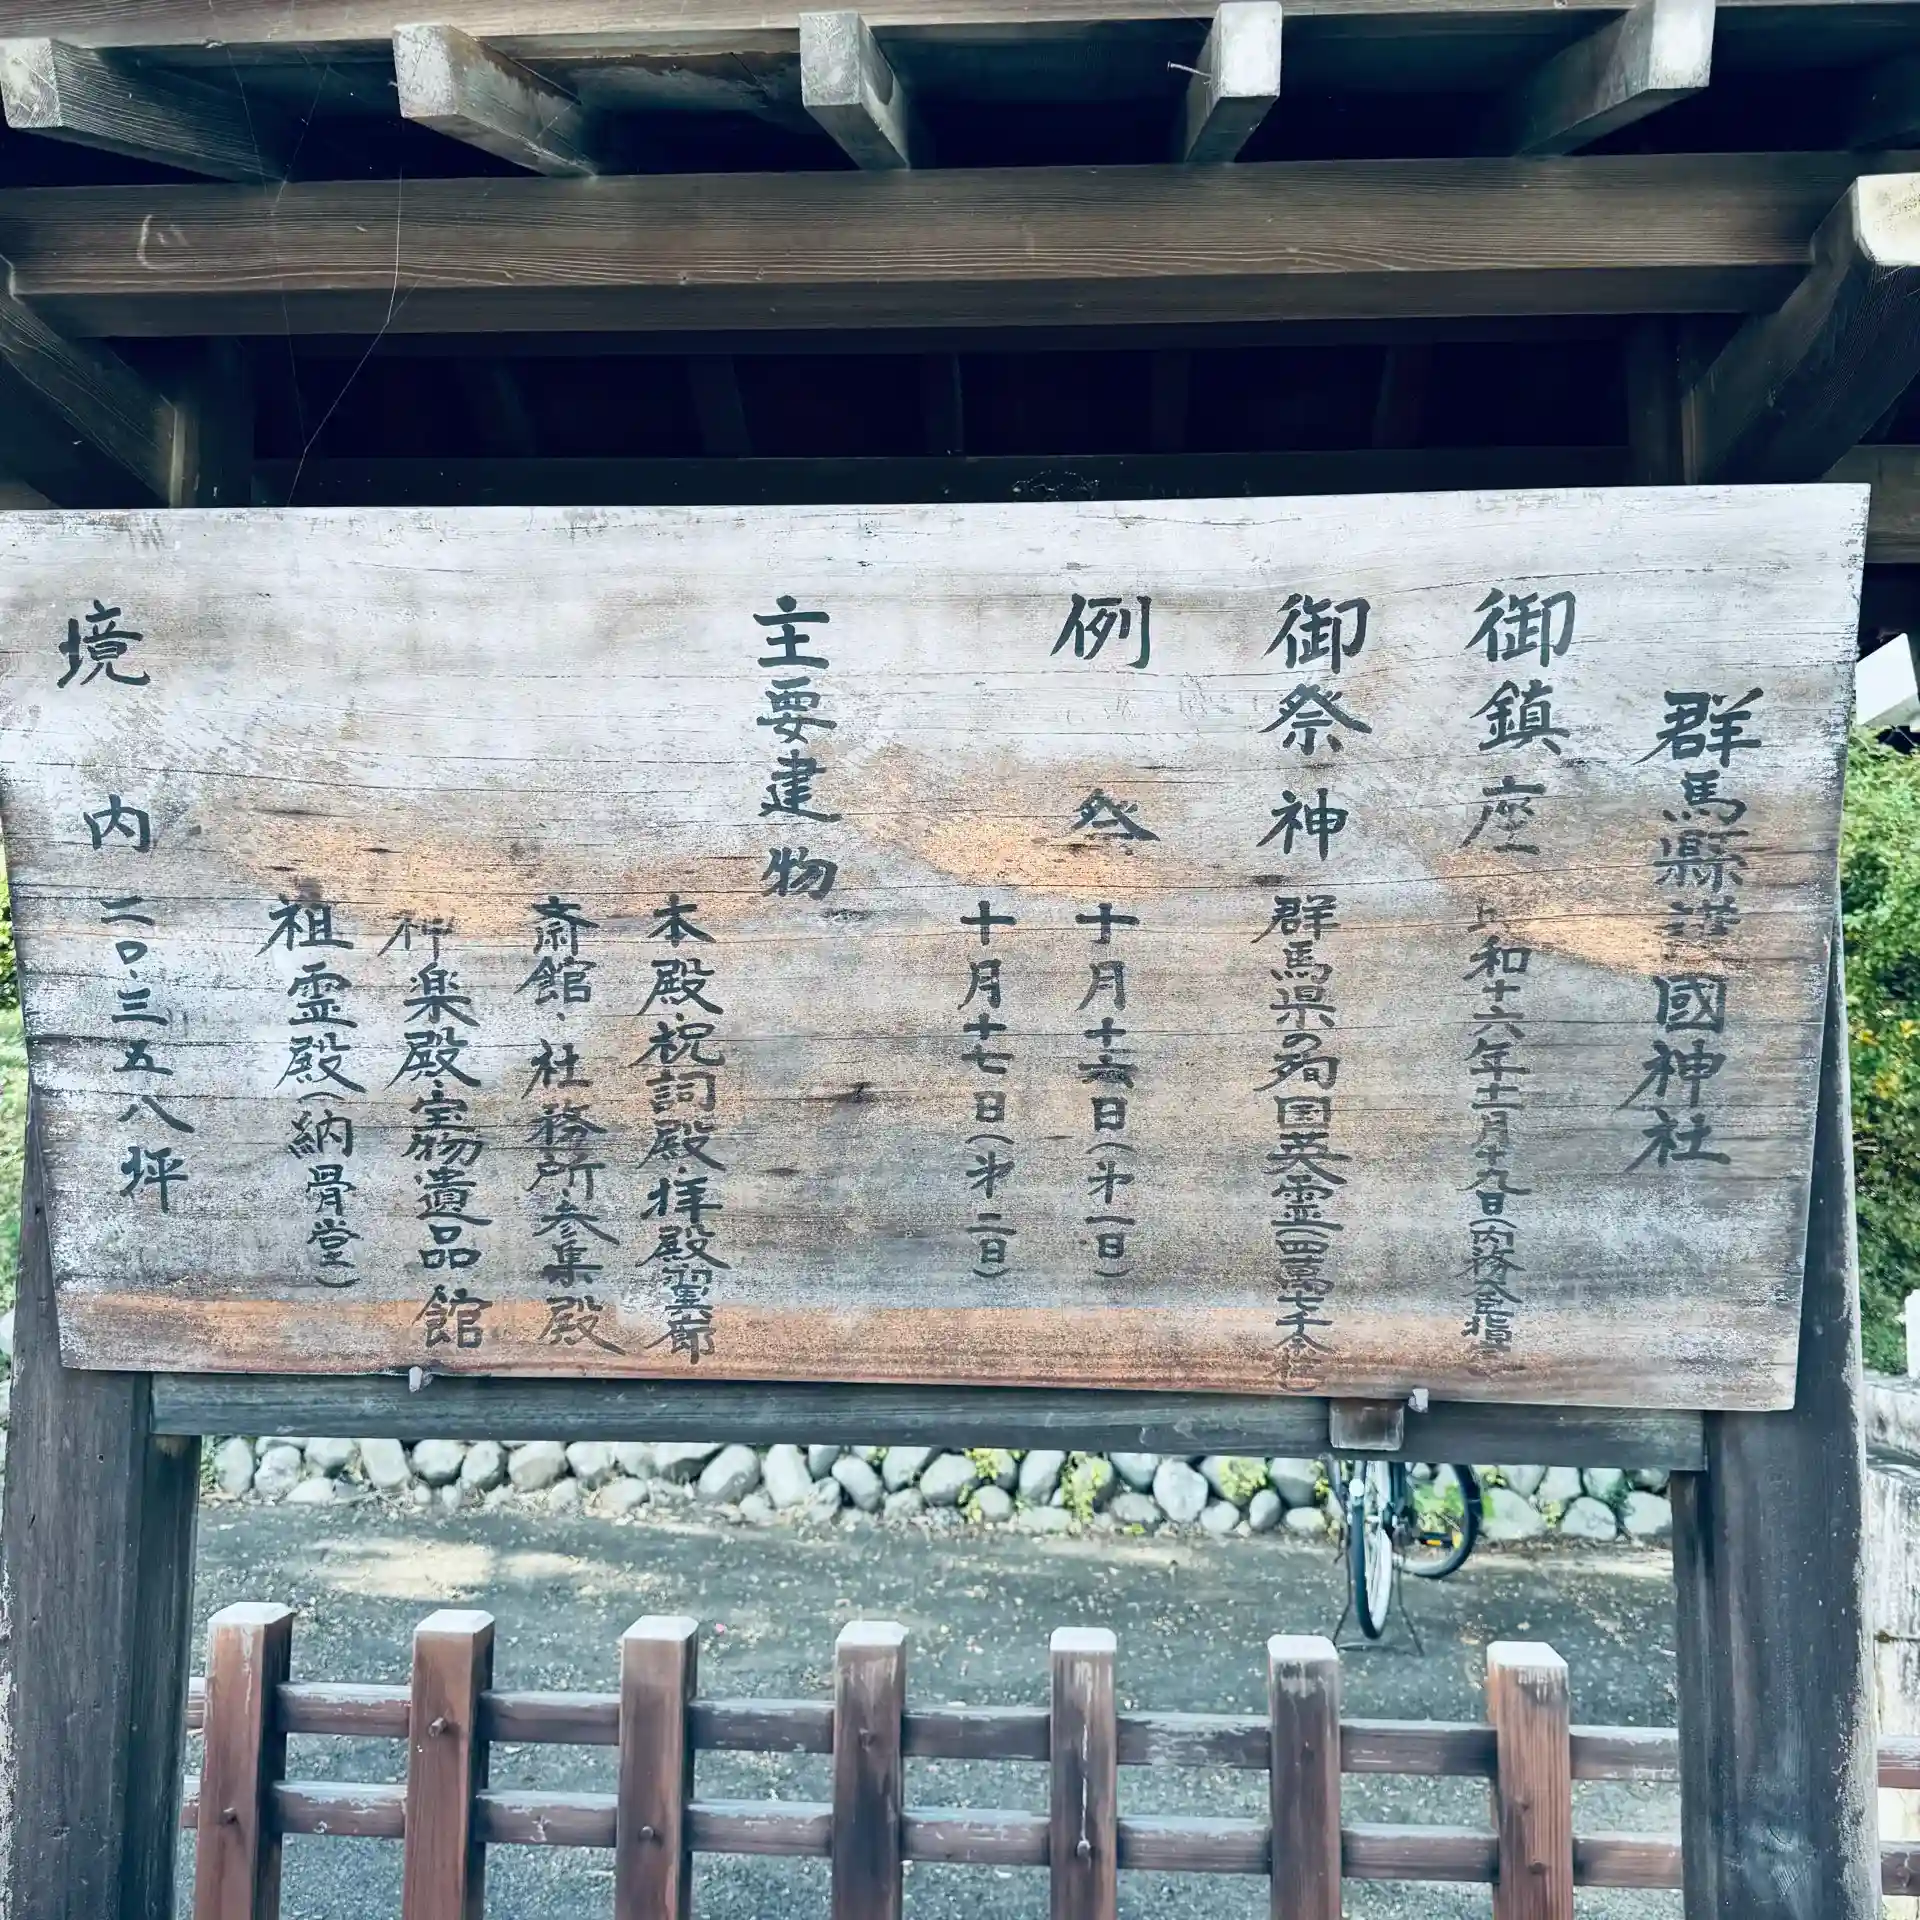 群馬縣護國神社
御鎮座 昭和十六年十一月十九日(内務大臣指定
御祭神 群馬県の殉国英霊(四萬七千余柱)
例祭 十月十六日(第一日)
十月十七日(第二日)
主要建物
本殿・祝詞殿・拝殿翼廊
斎館・社務所・参集殿
神楽殿・宝物遺品館
祖霊殿(納骨堂)
境内 二〇・三五八坪